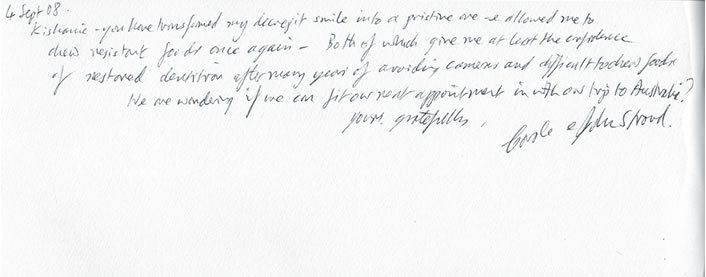 4 Sept 08.
Kishanie - you have transformed my decrepit smile into a pristine one - & allowed me to
chew resistant foods once again - Both of which give me at least the confidence
of restored dentition after many years of avoiding cameras and difficult to chew foods.
We are wondering if we can fit our next appointment in with our trip to Australia?
yours gratefully,
Carole & John Stroud.